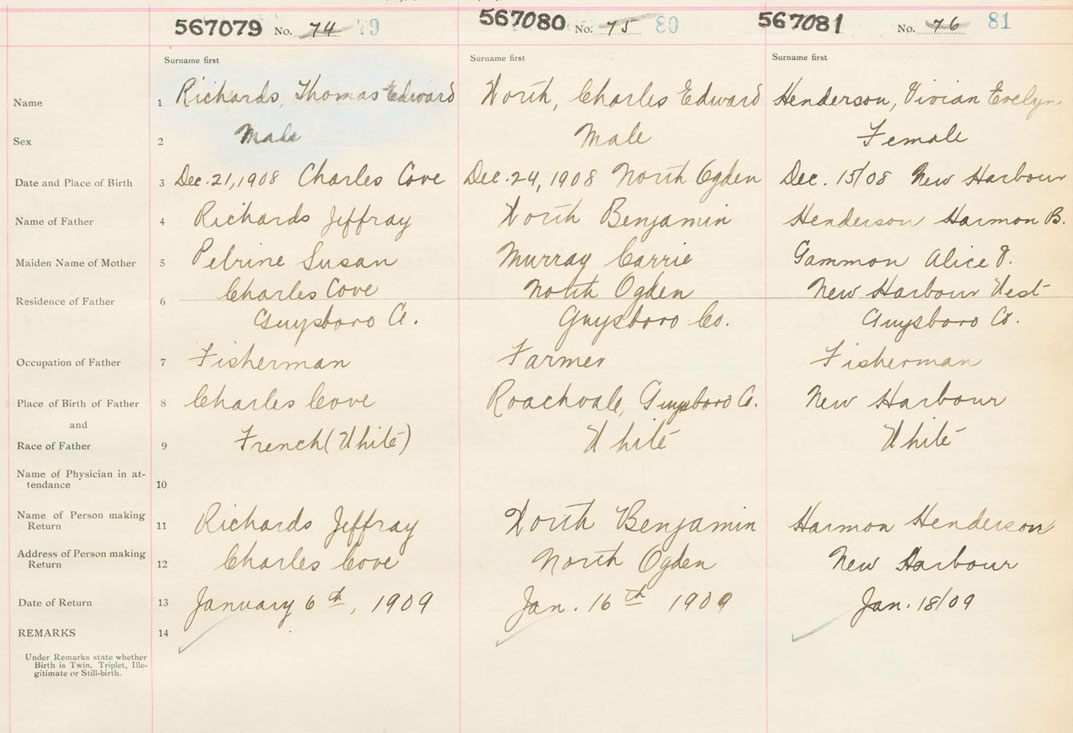 567079 No. 74 79 567080 No. 75 80 567081 No. 76 81
Surname first Surname first Surname first
Name 1 Richards, Thomas Edward North, Charles Edward Henderson, Vivian Evelyn
Sex 2 Male Male Female
Date and Place of Birth 3 Dec. 21, 1908 Charles Cove Dec. 24, 1908 North Ogden Dec. 15/08 New Harbour
Name of Father 4 Richards Jeffray North Benjamin Henderson Harmon B.
Maiden Name of Mother 5 Pelrine Susan Murray Carrie Gammon Alice J.
Residence of Father 6 Charles Cove North Ogden New Harbour West
Guysboro Co. Guysboro Co. Guysboro Co.
Occupation of Father 7 Fisherman Farmer Fisherman
Place of Birth of Father 8 Charles Cove Roachvale, Guysboro Co. New Harbour
and
Race of Father 9 French (White) White White
Name of Physician in at-
tendance 10
Name of Person making
Return 11 Richards Jeffray North Benjamin Harmon Henderson
Address of Person making
Return 12 Charles Cove North Ogden New Harbour
Date of Return 13 January 6th, 1909 Jan. 16th 1909 Jan. 18/09
REMARKS 14
Under Remarks state whether
Birth is Twin, Triplet, Ille-
gitimate or Still-birth.